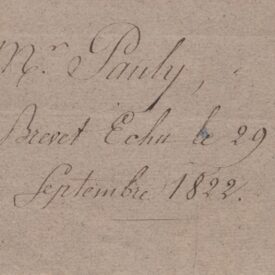 Mr. Pauly,
Brevet Echu le 29
Septembre 1822.